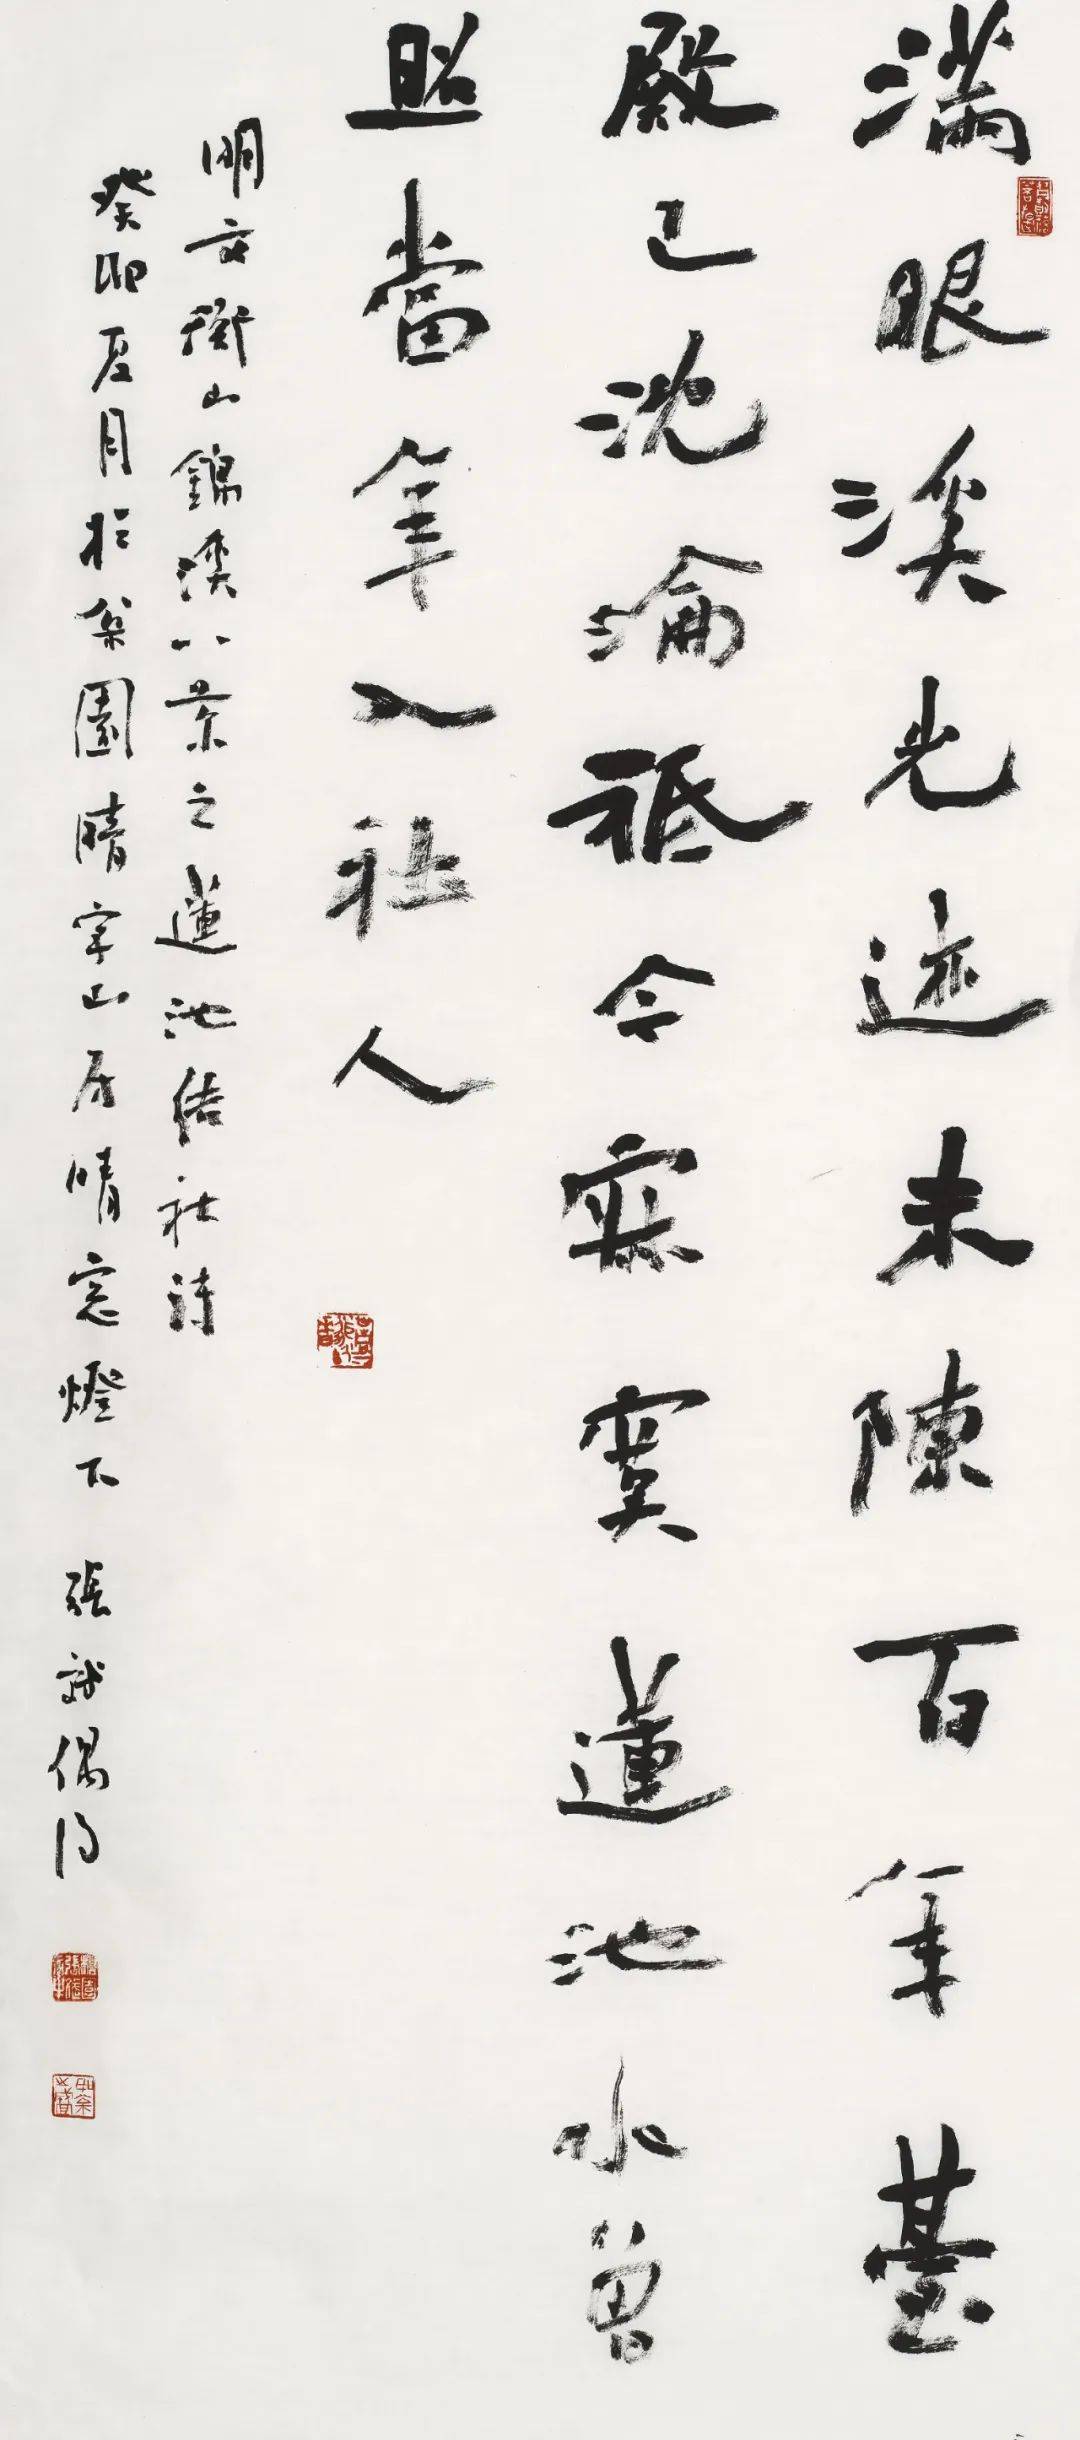 滿眼溪光迹未陳百年臺
殿已沈淪祗今寂寞蓮池水曾
照當年入社人
明文衡山錦溪八景之蓮池結社詩
癸卯夏月於燊園晴宇山居晴窓燈下 張 偶得